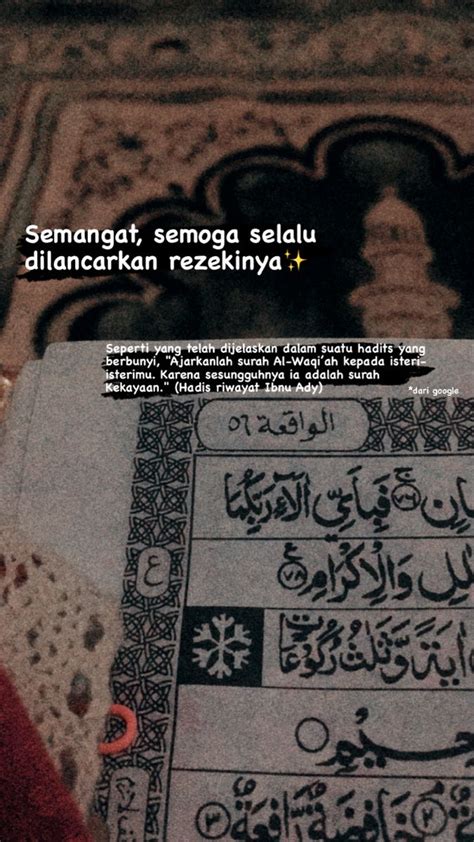 Semangat, semoga selalu
dilancarkan rezekinya✨
Seperti yang telah dijelaskan dalam suatu hadits yang
berbunyi, "Ajarkanlah surah Al-Waqi'ah kepada isteri-
isterimu. Karena sesungguhnya ia adalah surah
Kekayaan." (Hadis riwayat Ibnu Ady)
*dari google
الواقعة ٥٦
فَبِأَيِّ آلَاءِ رَبِّكُمَا
وَالْإِكْرَامِ ٧٨
ع
وَّثَلٰثُ رُكُوْعَاتٍ
خَافِضَةٌ رَّافِعَةٌ ٣